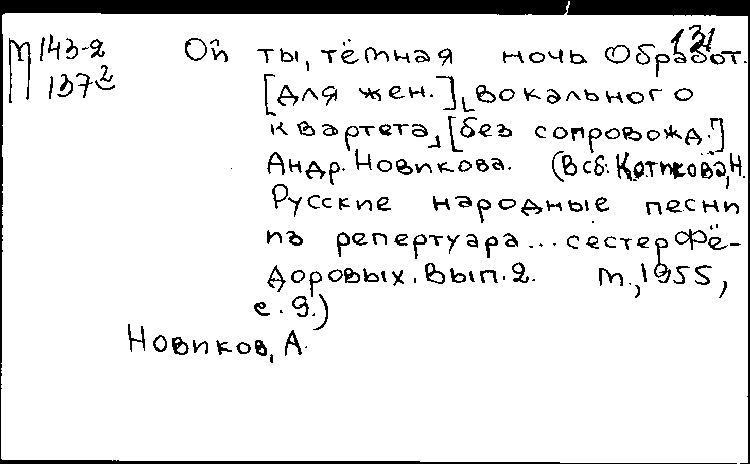 131
М 143-2
137²
Ой ты, тёмная ночь Обработ.
[для жен.] вокального
квартета, [без сопровожд.]
Андр. Новикова. (В сб: Котикова, Н.
Русские народные песни
из репертуара... сестер Фё-
доровых. Вып. 2. М., 1955,
с. 9.)
Новиков, А.